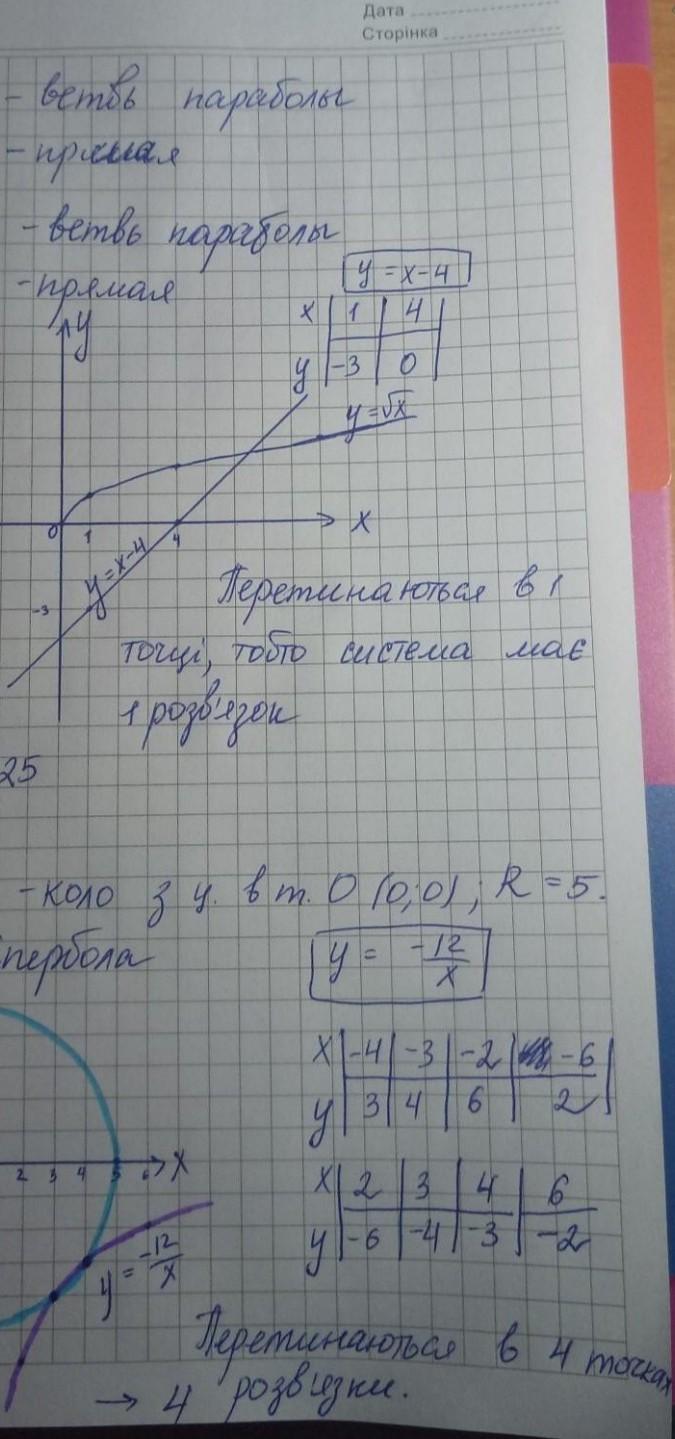 Дата
Сторінка
- ветвь параболы
- прямая
- ветвь параболы
- прямая
y = x-4
x | 1 | 4 |
y | -3 | 0 |
y
y=√x
0 1 4 x
y=x-4
-3
Перетинаються в 1
точці, тобто система має
1 розв'язок
25
- коло з ц. в т. О (0;0); R = 5.
пербола
y = -12/x
x | -4 | -3 | -2 | -6 |
y | 3 | 4 | 6 | 2 |
2 3 4 5 6 x
x | 2 | 3 | 4 | 6
y | -6 | -4 | -3 | -2
y = -12/x
Перетинаються в 4 точках
→ 4 розвязки.